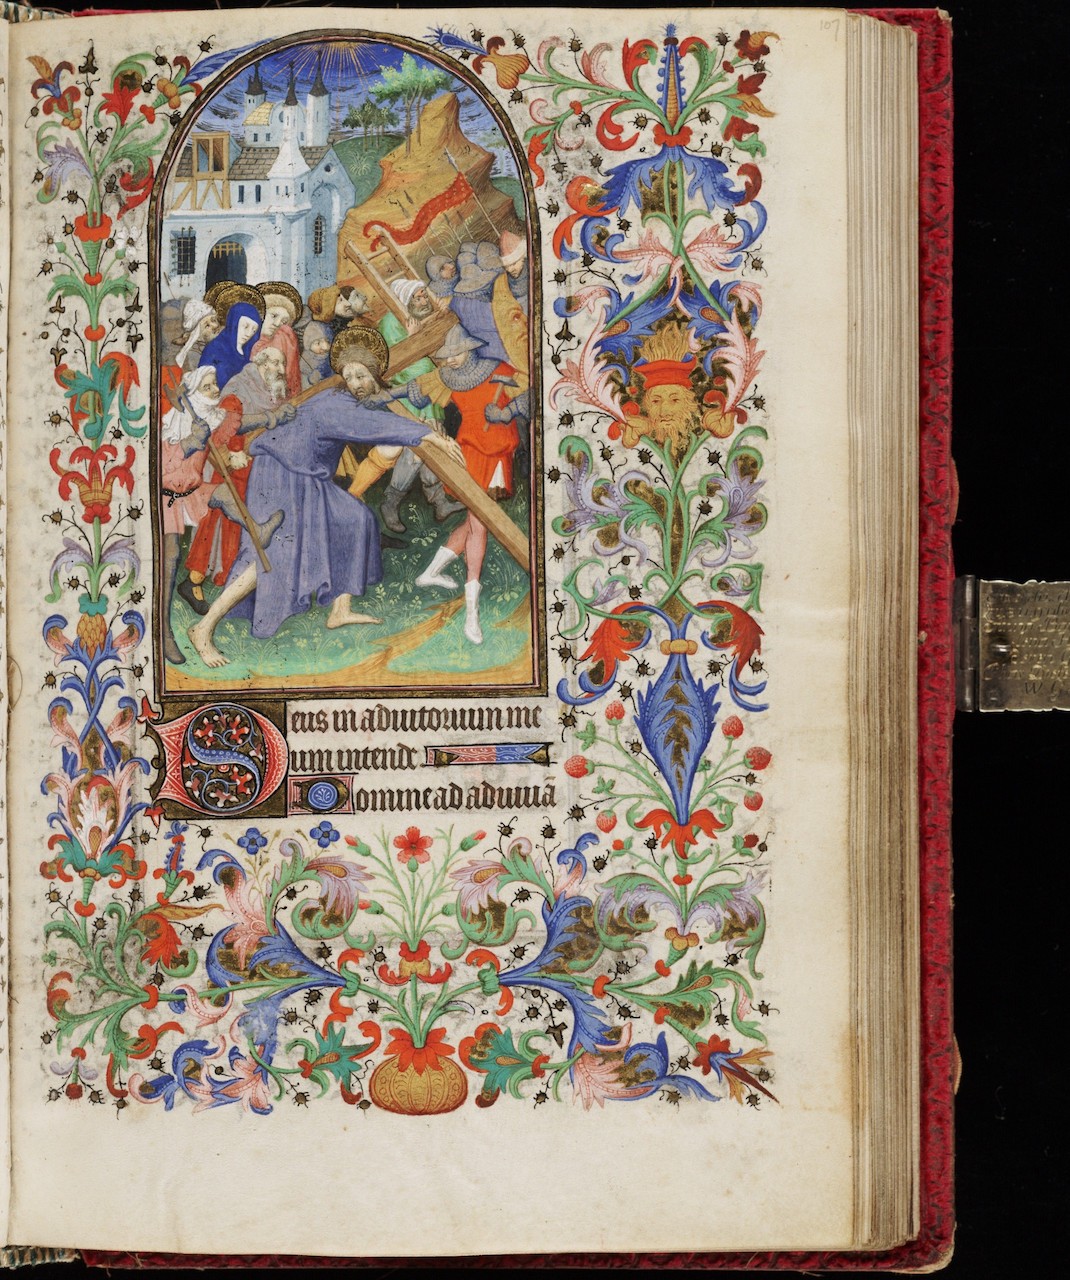 107
Deus in adiutorium me
um intende
Domine ad adiuuā